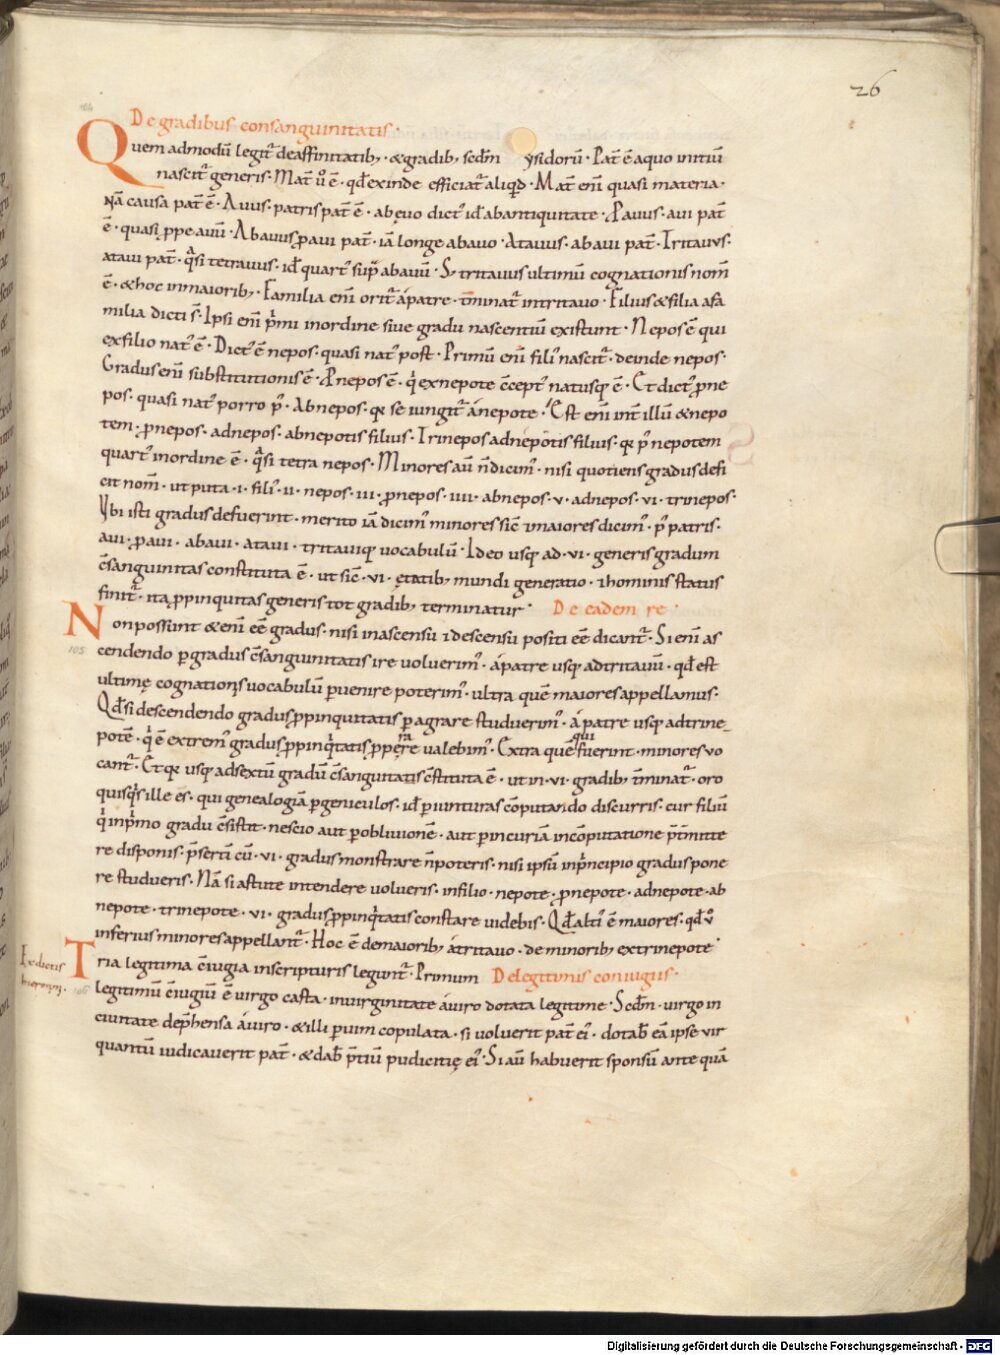 26
104
De gradibus consanguinitatis ·
Quem admodū legit̄ de affinitatib; · & gradib; scd̄m ysidorū · Pat̄ ē a quo initiū
nascit̄ generis · Mat̄ ů ē · qd̄ exinde efficiat̄ aliqd · Mat̄ eni̅ quasi materia ·
nā causa pat̄ ē · Auus · patris pat̄ ē · ab ęuo dict᾽ id̄ ab antiquitate · Pauus · aui pat̄
ē · quasi ppe auū · Abauus paui pat̄ · iā longe ab auo · Atauus · abaui pat̄ · Tritauus ·
ataui pat̄ · qͥsi tetrauus · id̄ quart᾽ sup̄ abauū · S; tritauus ultimū cognationis nom̄
ē · & hoc in maiorib; · Familia eni̅ orit̄ á patre · t̄minat̄ in tritauo · Filius & filia a fa
milia dicti s̄ · Ipsi eni̅ pͥmi in ordine siue gradu nascentiū existunt · Nepos ē qui
ex filio nat᾽ ē · Dict᾽ ē nepos · quasi nat᾽ post · Primū eni̅ fili᾽ nascit̄ · deinde nepos ·
Gradus eni̅ substitutionis ē · Pnepos ē · qͥ ex nepote c̄cept᾽ natusq; ē · Et dict᾽ pne
pos · quasi nat᾽ porro p᾽ · Abnepos · q; se iungit̄ á nepote · Est eni̅ int̄ illū & nepo
tem · pnepos · adnepos · abnepotis filius · Trinepos adnepotis filius · q; p᾽ nepotem
quart᾽ in ordine ē · qͥsi tetra nepos · Minores aū n̄ dicim᾽ · nisi quotiens gradus defi
cit nom̄ · ut puta · i · fili᾽ · ii · nepos · iii · pnepos · iiii · abnepos · v · adnepos · vi · trinepos ·
Vbi isti gradus defuerint · merito iā dicim᾽ minores sic̄ 7 maiores dicim᾽ · p᾽ patris ·
aui · paui · abaui · ataui · tritauiq; uocabulū · Ideo usq; ad · vi · generis gradum
c̄sanguinitas constituta ē · ut sic̄ · vi · ętatib; mundi generatio · 7 hominis status
finit̄ · ita ppinquitas generis tot gradib; terminatur · De eadem re ·
Non possunt & eni̅ eē gradus · nisi in ascensu 7 descensu positi eē dicant̄ · Si eni̅ as
105
cendendo p gradus c̄sanguinitatis ire uoluerim᾽ · á patre usq; ad tritauū · qd̄ est
ultimę cognationis uocabulū puenire poterim᾽ · ultra quē maiores appellamus ·
Qd̄ si descendendo gradus ppinquitatis pagrare studuerim᾽ · á patre usq; ad trine_
potē · qͥ ē extrem᾽ gradus ppinqͥtatis ppere ualebim᾽ · Extra quē qui fuerint · minores uo
cant̄ · Et q; usq; ad sextū gradū c̄sanguitatis c̄stituta ē · ut in · vi · gradib; t̄minat̄ · oro
quisqͥs ille es · qui genealogiā p geniculos · id̄ p iunturas cōputando discurris · cur filiū
qͥ in pͥmo gradu c̄sistit · nescio aut p obliuionē · aut p incuriā in cōputatione p̄t̄mitte
re disponis · p̄serti̅ cū · vi · gradus monstrare n̄ poteris · nisi ipsū in pͥncipio gradus pone
re studueris · Nā si astute intendere uolueris · in filio · nepote · pnepote · adnepote · ab
nepote · trinepote · vi · gradus ppinqͥtatis constare uidebis · Qd̄ alti᾽ ē maiores · qd̄ ů
inferius minores appellant̄ · Hoc ē de maiorib; á tritauo · de minorib; ex trinepote ·
Ex dictis
hieronim̄ ·
106
Tria legitima c̄iugia in scripturis legunt̄ · Primum De legitimis coniugiis ·
legitimū c̄iugiū ē uirgo casta · in uirginitate á uiro dotata legitime · Scd̄m · uirgo in
ciuitate dep̄hensa á uiro · & illi p uim copulata · si uoluerit pat̄ ei᾽ · dotab̄ eā ipse uir
quantū iudicauerit pat̄ · & dab̄ p̄tiū pudicitię ei᾽ · Si aū habuerit sponsū ante quā
Digitalisierung gefördert durch die Deutsche Forschungsgemeinschaft - DFG